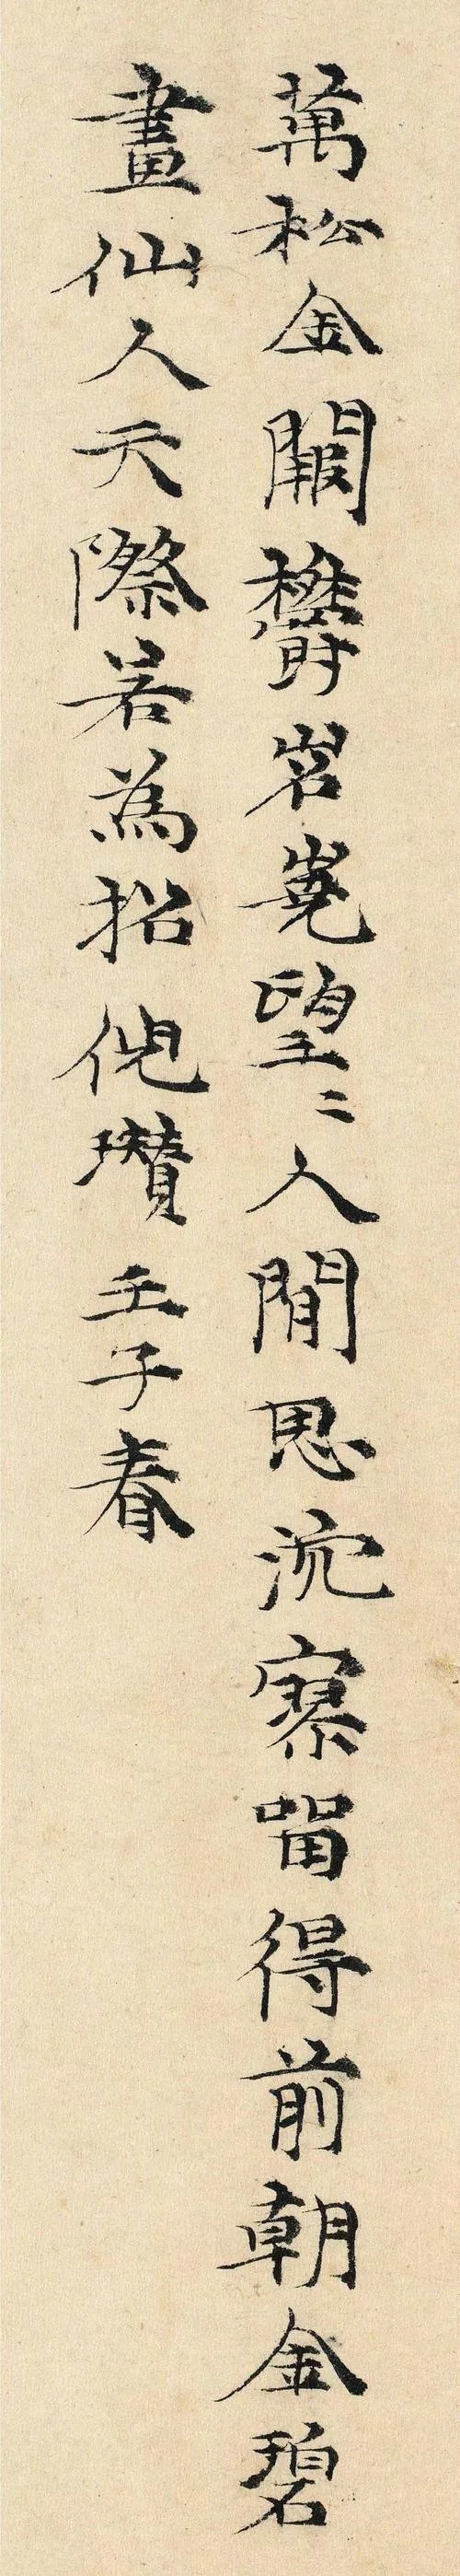 萬松金闕鬱岧嶢望〻人間思泬寥留得前朝金碧
畫仙人天際若為招佗瓚壬子春